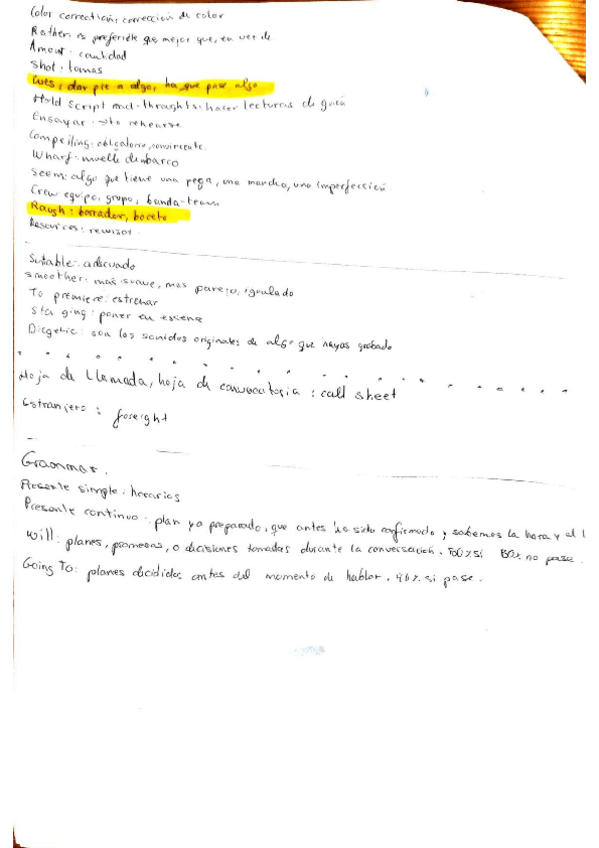 Color correction: corrección de color
Rather: es preferible que, mejor que, en vez de
Amount: cantidad
Shot: tomas
Cues: dar pie a algo, ha que pase algo
Hold script read-throughts: hacer lecturas de guión
Ensayar → to rehearse
Compelling: obligatorio, convincente
Wharf: muelle de embarco
Seem: algo que tiene una pega, una marcha, una imperfección
Crew equipo, grupo, banda-team
Rough: borrador, boceto
Resources: recursos
Suitable: adecuado
smoother: mas suave, mas parejo, igualado
To premiere: estrenar
Sta ging: poner en escena
Diegetic: son los sonidos originales de algo que hayas grabado
Hoja de llamada, hoja de convocatoria: call sheet
Estranjero: foreight
Grammar.
Presente simple: horarios
Presente continuo: plan ya preparado, que antes ha sido confirmado y sabemos la hora y el l
Will: planes, promesas, o decisiones tomadas durante la conversación. 50% si 50% no pase.
Going To: planes decididos antes del momento de hablar. 90% si pase.